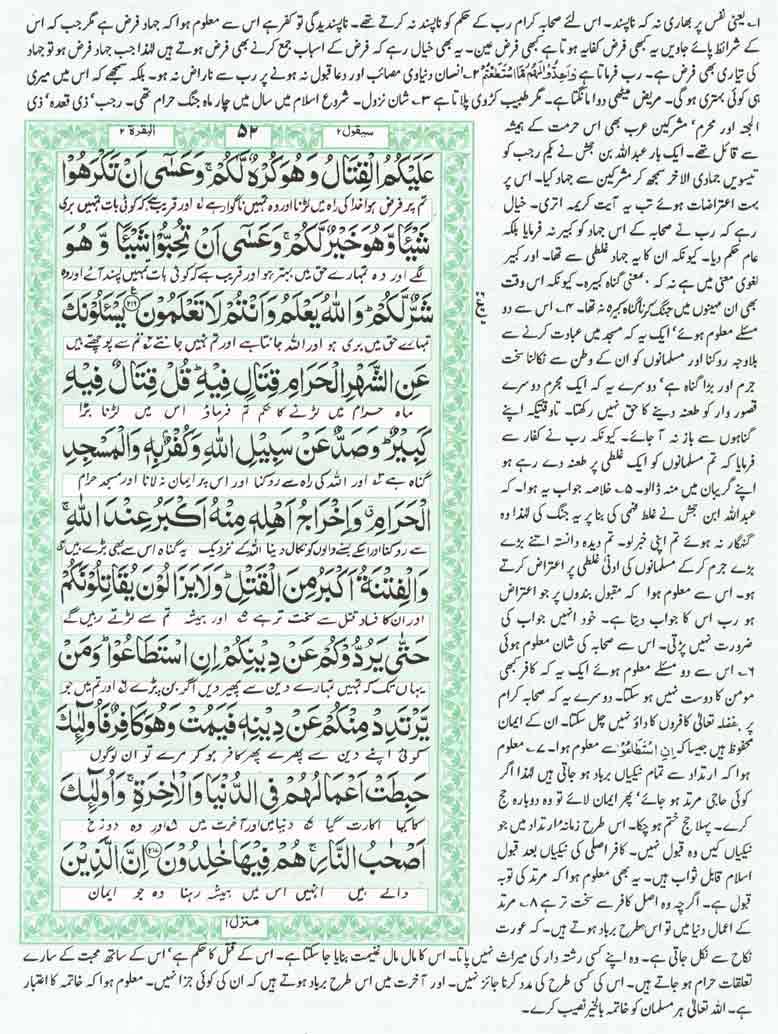 ۱۔ یعنی نفس پر بھاری نہ کہ ناپسند۔ اس لئے صحابہ کرام رب کے حکم کو ناپسند نہ کرتے تھے۔ ناپسندیدگی تو کفر ہے اس سے معلوم ہوا کہ جہاد فرض ہے مگر جب کہ اس
کے شرائط پائے جاویں یہ کبھی فرض کفایہ ہوتا ہے کبھی فرض عین۔ یہ بھی خیال رہے کہ فرض کے اسباب جمع کرنے بھی فرض ہوتے ہیں لہٰذا جب جہاد فرض ہو تو جہاد
کی تیاری بھی فرض ہے۔ رب فرماتا ہے وَاَعِدُّوْا لَهُمْ مَّا اسْتَطَعْتُمْ ۲۔ انسان دنیاوی مصائب اور دعا قبول نہ ہونے پر رب سے ناراض نہ ہو۔ بلکہ سمجھے کہ اس میں میری
ہی کوئی بہتری ہو گی۔ مریض میٹھی دوا مانگتا ہے۔ مگر طبیب کڑوی پلاتا ہے ۳۔ شان نزول۔ شروع اسلام میں سال میں چار ماہ جنگ حرام تھی۔ رجب‘ ذی قعدہ‘ ذی
الحجہ اور محرم‘ مشرکین عرب بھی اس حرمت کے ہمیشہ
سے قائل تھے۔ ایک بار عبداللہ بن جحش نے یکم رجب کو
تیسویں جمادی الآخر سمجھ کر مشرکین سے جہاد کیا۔ اس پر
بہت اعتراضات ہوئے تب یہ آیت کریمہ اتری۔ خیال
رہے کہ رب نے صحابہ کے اس جہاد کو کبیر نہ فرمایا بلکہ
عام حکم دیا۔ کیونکہ ان کا یہ جہاد غلطی سے تھا۔ اور کبیر
لغوی معنی میں ہے نہ کہ بمعنی گناہ کبیرہ۔ کیونکہ اس وقت
بھی ان مہینوں میں جنگ کرنا گناہ کبیرہ نہ تھا۔ ۴۔ اس سے دو
مسئلے معلوم ہوئے‘ ایک یہ کہ مسجد میں عبادت کرنے سے
بلاوجہ روکنا اور مسلمانوں کو ان کے وطن سے نکالنا سخت
جرم اور بڑا گناہ ہے‘ دوسرے یہ کہ ایک مجرم دوسرے
قصور وار کو طعنہ دینے کا حق نہیں رکھتا۔ تاوقتیکہ اپنے
گناہوں سے باز نہ آ جائے۔ کیونکہ رب نے کفار سے
فرمایا کہ تم مسلمانوں کو ایک غلطی پر طعنہ دے رہے ہو
اپنے گریبان میں منہ ڈالو۔ ۵۔ خلاصہ جواب یہ ہوا۔ کہ
عبداللہ ابن جحش نے غلط فہمی کی بنا پر یہ جنگ کی لہٰذا وہ
گنہگار نہ ہوئے تم اپنی خبر لو۔ تم دیدہ دانستہ اتنے بڑے
بڑے جرم کر کے مسلمانوں کی ادنٰی غلطی پر اعتراض کرتے
ہو۔ اس سے معلوم ہوا کہ مقبول بندوں پر جو اعتراض
ہو رب اس کا جواب دیتا ہے۔ خود انہیں جواب کی
ضرورت نہیں پڑتی۔ اس سے صحابہ کی شان معلوم ہوئی
۶۔ اس سے دو مسئلے معلوم ہوئے ایک یہ کہ کافر کبھی
مومن کا دوست نہیں ہو سکتا۔ دوسرے یہ کہ صحابہ کرام
پر بفضلہ تعالٰی کافروں کا داؤ نہیں چل سکتا۔ ان کے ایمان
محفوظ ہیں جیسا کہ اِنِ اسْتَطَاعُوْا سے معلوم ہوا۔ ۷۔ معلوم
ہوا کہ ارتداد سے تمام نیکیاں برباد ہو جاتی ہیں لہٰذا اگر
کوئی حاجی مرتد ہو جائے‘ پھر ایمان لائے تو وہ دوبارہ حج
کرے۔ پہلا حج ختم ہو چکا۔ اس طرح زمانہ ارتداد میں جو
نیکیاں کیں وہ قبول نہیں۔ کافر اصلی کی نیکیاں بعد قبول
اسلام قابل ثواب ہیں۔ یہ بھی معلوم ہوا کہ مرتد کی توبہ
قبول ہے۔ اگرچہ وہ اصل کافر سے سخت تر ہے ۸۔ مرتد
کے اعمال دنیا میں تو اس طرح برباد ہوتے ہیں۔ کہ عورت
نکاح سے نکل جاتی ہے۔ وہ اپنے کسی رشتہ دار کی میراث نہیں پاتا۔ اس کا مال مال غنیمت بنایا جا سکتا ہے۔ اس کے قتل کا حکم ہے‘ اس کے ساتھ محبت کے سارے
تعلقات حرام ہو جاتے ہیں۔ اس کی کسی طرح کی مدد کرنا جائز نہیں۔ اور آخرت میں اس طرح برباد ہوتے ہیں کہ ان کی کوئی جزا نہیں۔ معلوم ہوا کہ خاتمہ کا اعتبار
ہے۔ اللہ تعالٰی ہر مسلمان کو خاتمہ بالخیر نصیب کرے۔
سیقول ۲ ۵۲ البقرۃ ۲
عَلَيْكُمُ الْقِتَالُ وَهُوَ كُرْهٌ لَّكُمْ ۚ وَعَسٰٓى اَنْ تَكْرَهُوْا
تم پر فرض ہوا خدا کی راہ میں لڑنا اور وہ تمہیں ناگوار ہے ۱ اور قریب ہے کہ کوئی بات تمہیں بری
شَيْـًٔا وَّهُوَ خَيْرٌ لَّكُمْ ۚ وَعَسٰٓى اَنْ تُحِبُّوْا شَيْـًٔا وَّهُوَ
لگے اور وہ تمہارے حق میں بہتر ہو اور قریب ہے کہ کوئی بات تمہیں پسند آئے اور وہ
شَرٌّ لَّكُمْ ؕ وَاللّٰهُ يَعْلَمُ وَاَنْتُمْ لَا تَعْلَمُوْنَ ﴿۲۱۶﴾ يَسْـَٔلُوْنَكَ
تمہارے حق میں بری ہو اور اللہ جانتا ہے اور تم نہیں جانتے ۲ تم سے پوچھتے ہیں
عَنِ الشَّهْرِ الْحَرَامِ قِتَالٍ فِيْهِ ؕ قُلْ قِتَالٌ فِيْهِ
ماہ حرام میں لڑنے کا حکم تم فرماؤ اس میں لڑنا بڑا
كَبِيْرٌ ؕ وَصَدٌّ عَنْ سَبِيْلِ اللّٰهِ وَكُفْرٌۢ بِهٖ وَالْمَسْجِدِ
گناہ ہے ۳ اور اللہ کی راہ سے روکنا اور اس پر ایمان نہ لانا اور مسجد حرام
الْحَرَامِ ۗ وَاِخْرَاجُ اَهْلِهٖ مِنْهُ اَكْبَرُ عِنْدَ اللّٰهِ ۚ
سے روکنا اور اسکے بسنے والوں کو نکال دینا اللہ کے نزدیک یہ گناہ اس سے بھی بڑے ہیں ۴
وَالْفِتْنَةُ اَكْبَرُ مِنَ الْقَتْلِ ؕ وَلَا يَزَالُوْنَ يُقَاتِلُوْنَكُمْ
اور ان کا فساد قتل سے سخت تر ہے ۵ اور ہمیشہ تم سے لڑتے رہیں گے
حَتّٰى يَرُدُّوْكُمْ عَنْ دِيْنِكُمْ اِنِ اسْتَطَاعُوْا ؕ وَمَنْ
یہاں تک کہ تمہیں تمہارے دین سے پھیر دیں اگر بن پڑے ۶ اور تم میں جو
يَّرْتَدِدْ مِنْكُمْ عَنْ دِيْنِهٖ فَيَمُتْ وَهُوَ كَافِرٌ فَاُولٰٓئِكَ
کوئی اپنے دین سے پھرے پھر کافر ہو کر مرے تو ان لوگوں
حَبِطَتْ اَعْمَالُهُمْ فِى الدُّنْيَا وَالْاٰخِرَةِ ۚ وَاُولٰٓئِكَ
کا کیا اکارت گیا ۷ دنیا میں اور آخرت میں ۸ اور وہ دوزخ
اَصْحٰبُ النَّارِ ۚ هُمْ فِيْهَا خٰلِدُوْنَ ﴿۲۱۷﴾ اِنَّ الَّذِيْنَ
والے ہیں انہیں اس میں ہمیشہ رہنا وہ جو ایمان
منزل ۱